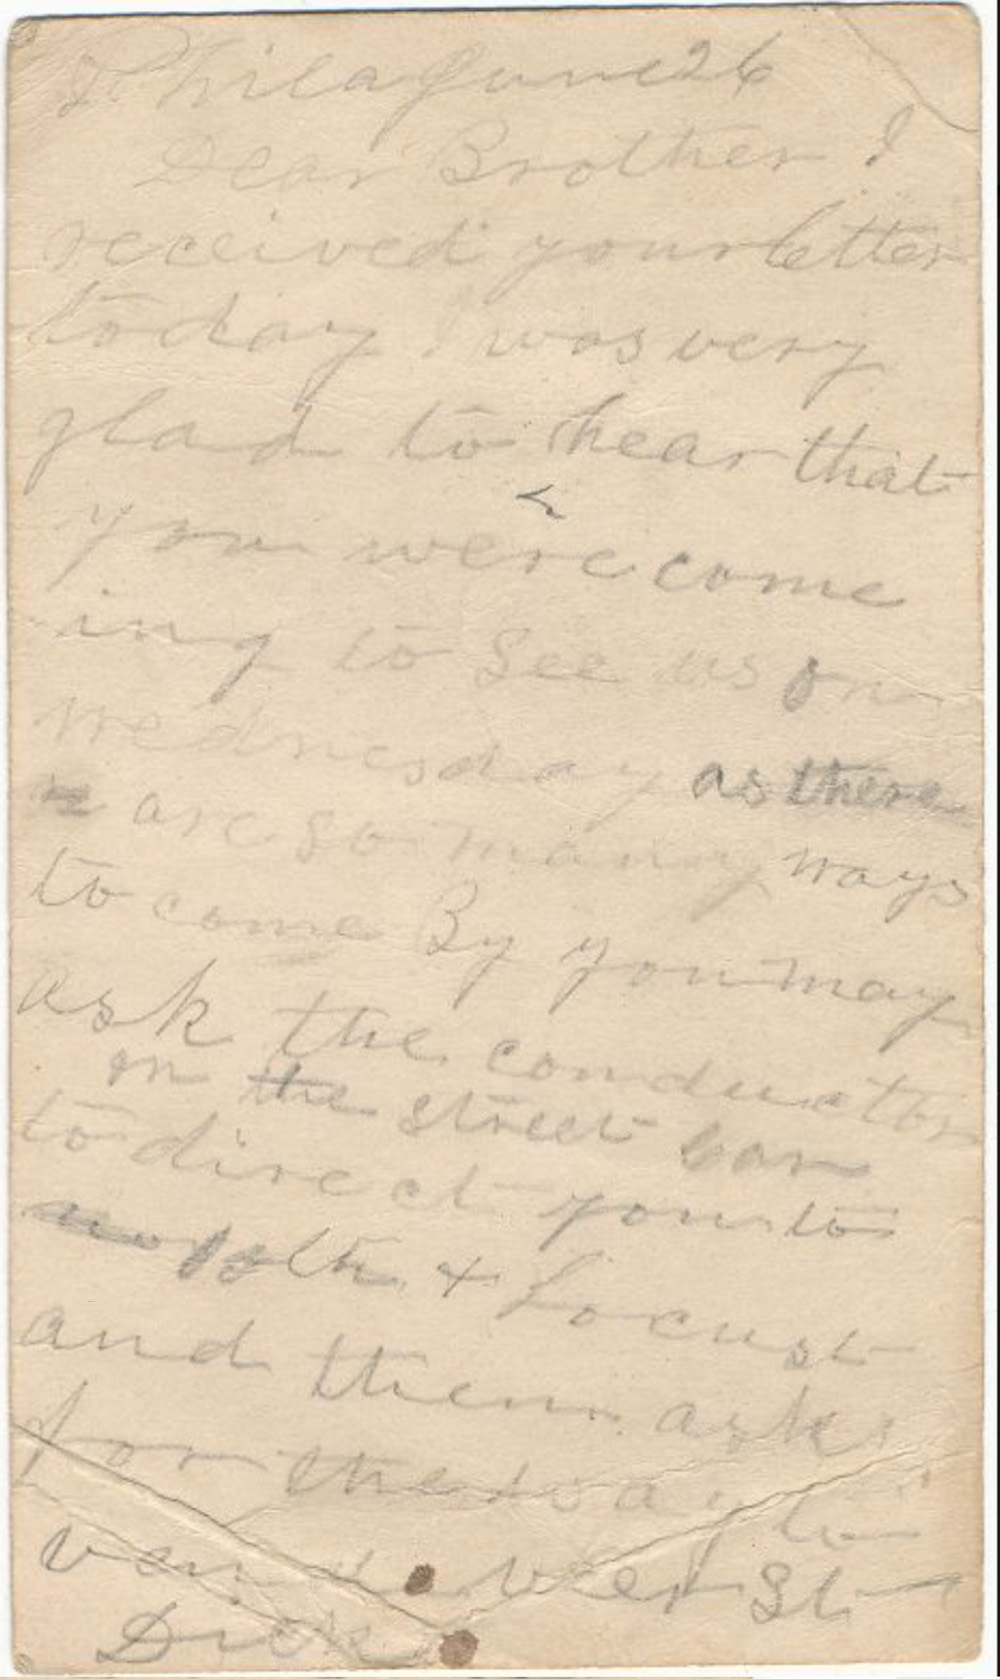 Phila June 26
Dear Brother I
received your letter
today I was very
glad to hear that
you were come
ing to See us on
Wednesday as there
are so many ways
to come By you may
ask the conductor
on the street car
to direct you to
& Locust
and then ask
for the way to
St
Dick